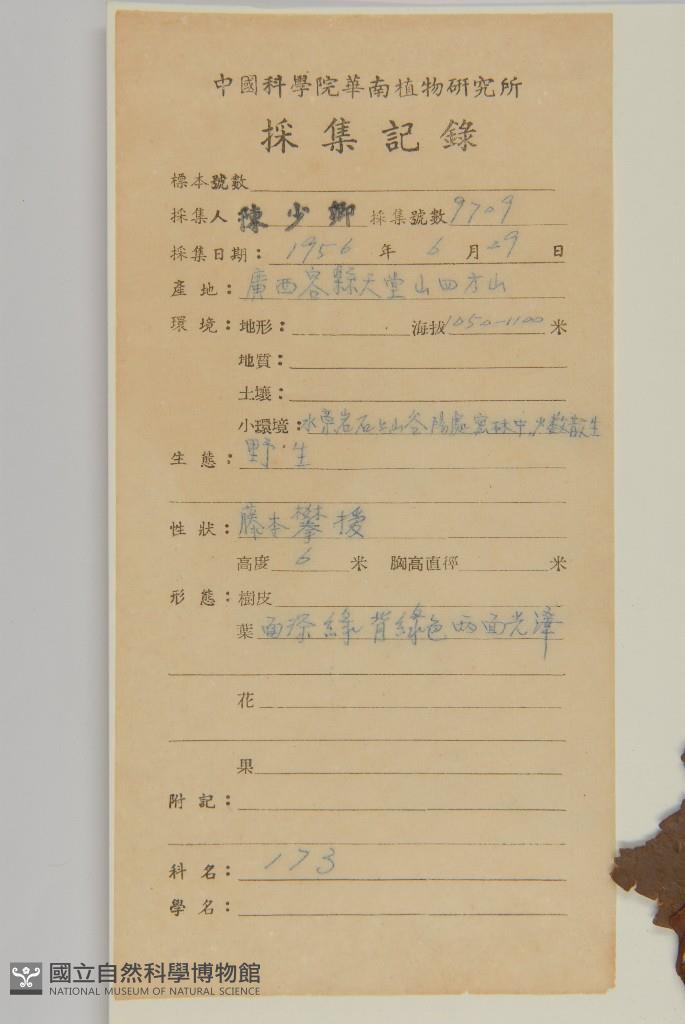 中國科學院華南植物研究所
採集記錄
標本號數
採集人 陳少卿 採集號數 9709
採集日期： 1956 年 6 月 29 日
產地： 廣西容縣天堂山四方山
環境：地形： 海拔 1050-1100 米
地質：
土壤：
小環境： 水旁岩石上山谷陽處密林中,少數散生
生態： 野生
性狀： 藤本攀援
高度 6 米 胸高直徑 米
形態：樹皮
葉 面深綠背綠色兩面光澤
花
果
附記：
科名： 173
學名：
國立自然科學博物館
NATIONAL MUSEUM OF NATURAL SCIENCE